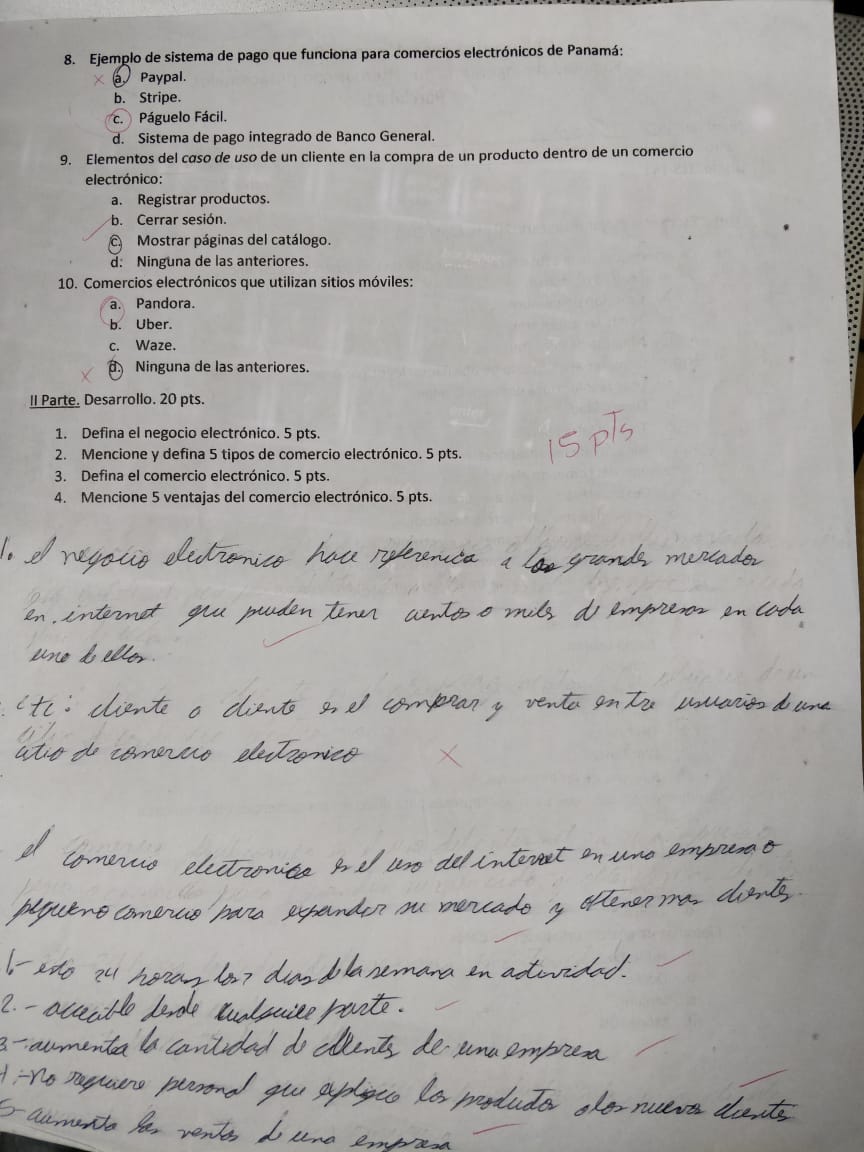 8. Ejemplo de sistema de pago que funciona para comercios electrónicos de Panamá:
a. Paypal.
b. Stripe.
c. Páguelo Fácil.
d. Sistema de pago integrado de Banco General.
9. Elementos del caso de uso de un cliente en la compra de un producto dentro de un comercio
electrónico:
a. Registrar productos.
b. Cerrar sesión.
c. Mostrar páginas del catálogo.
d. Ninguna de las anteriores.
10. Comercios electrónicos que utilizan sitios móviles:
a. Pandora.
b. Uber.
c. Waze.
d. Ninguna de las anteriores.
II Parte. Desarrollo. 20 pts.
1. Defina el negocio electrónico. 5 pts.
2. Mencione y defina 5 tipos de comercio electrónico. 5 pts.
3. Defina el comercio electrónico. 5 pts.
4. Mencione 5 ventajas del comercio electrónico. 5 pts.
15 pTs
1. el negocio electronico hace referencia a los grandes mercados
en internet que pueden tener cientos o miles de empresas en cada
uno de ellos.
ctc: cliente a cliente es el comprar y venta entre usuarios de una
sitio de comercio electronico
el comercio electronico es el uso del internet en una empresa o
pequeno comercio para expander su mercado y obtener mas clientes.
1- esto 24 horas los 7 dias de la semana en actividad.
2.- accesible desde cualquier parte.
3.- aumenta la cantidad de clientes de una empresa
4.- No requiere personal que explique los productos a los nuevos clientes
5- aumenta las ventas de una empresa